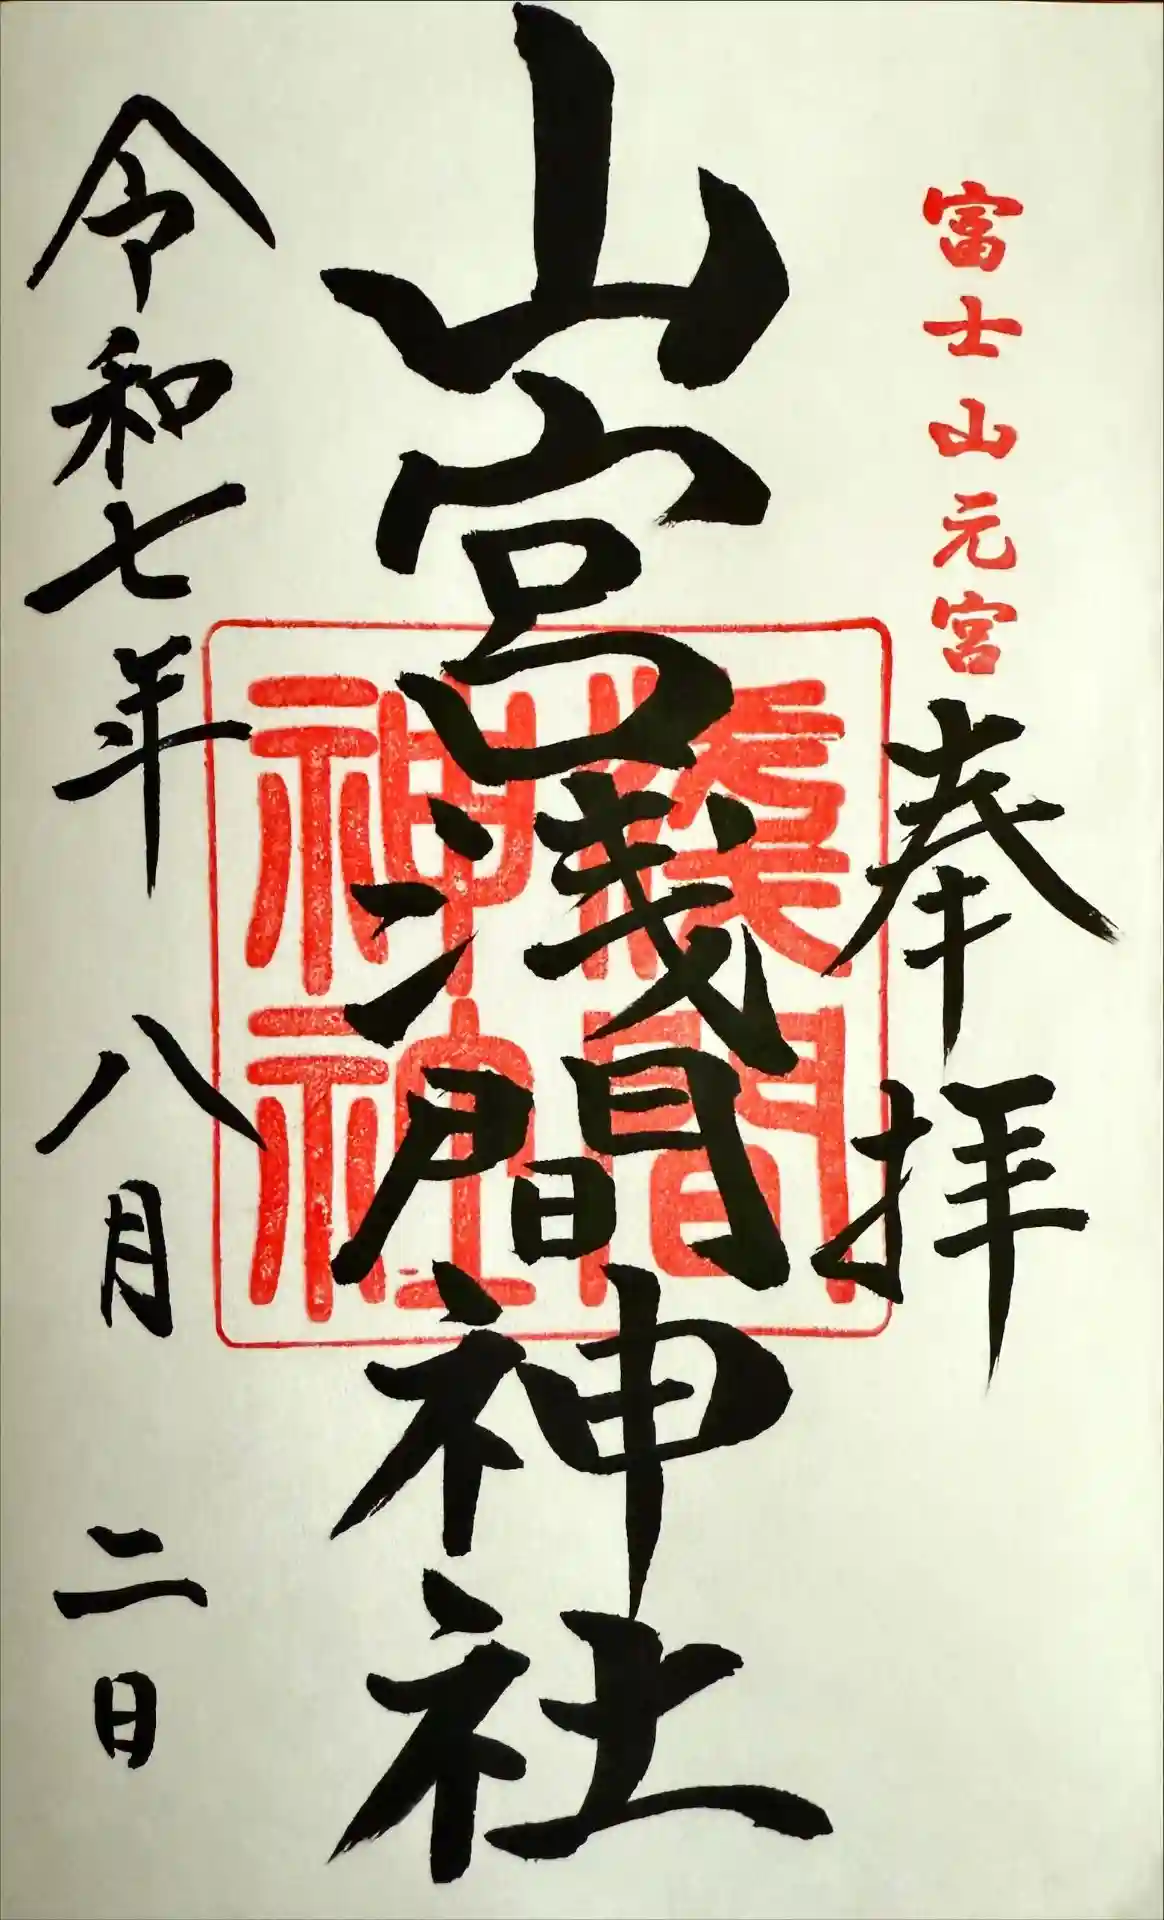 富士山元宮
奉拝
山宮浅間神社
浅間
神社
令和七年八月二日